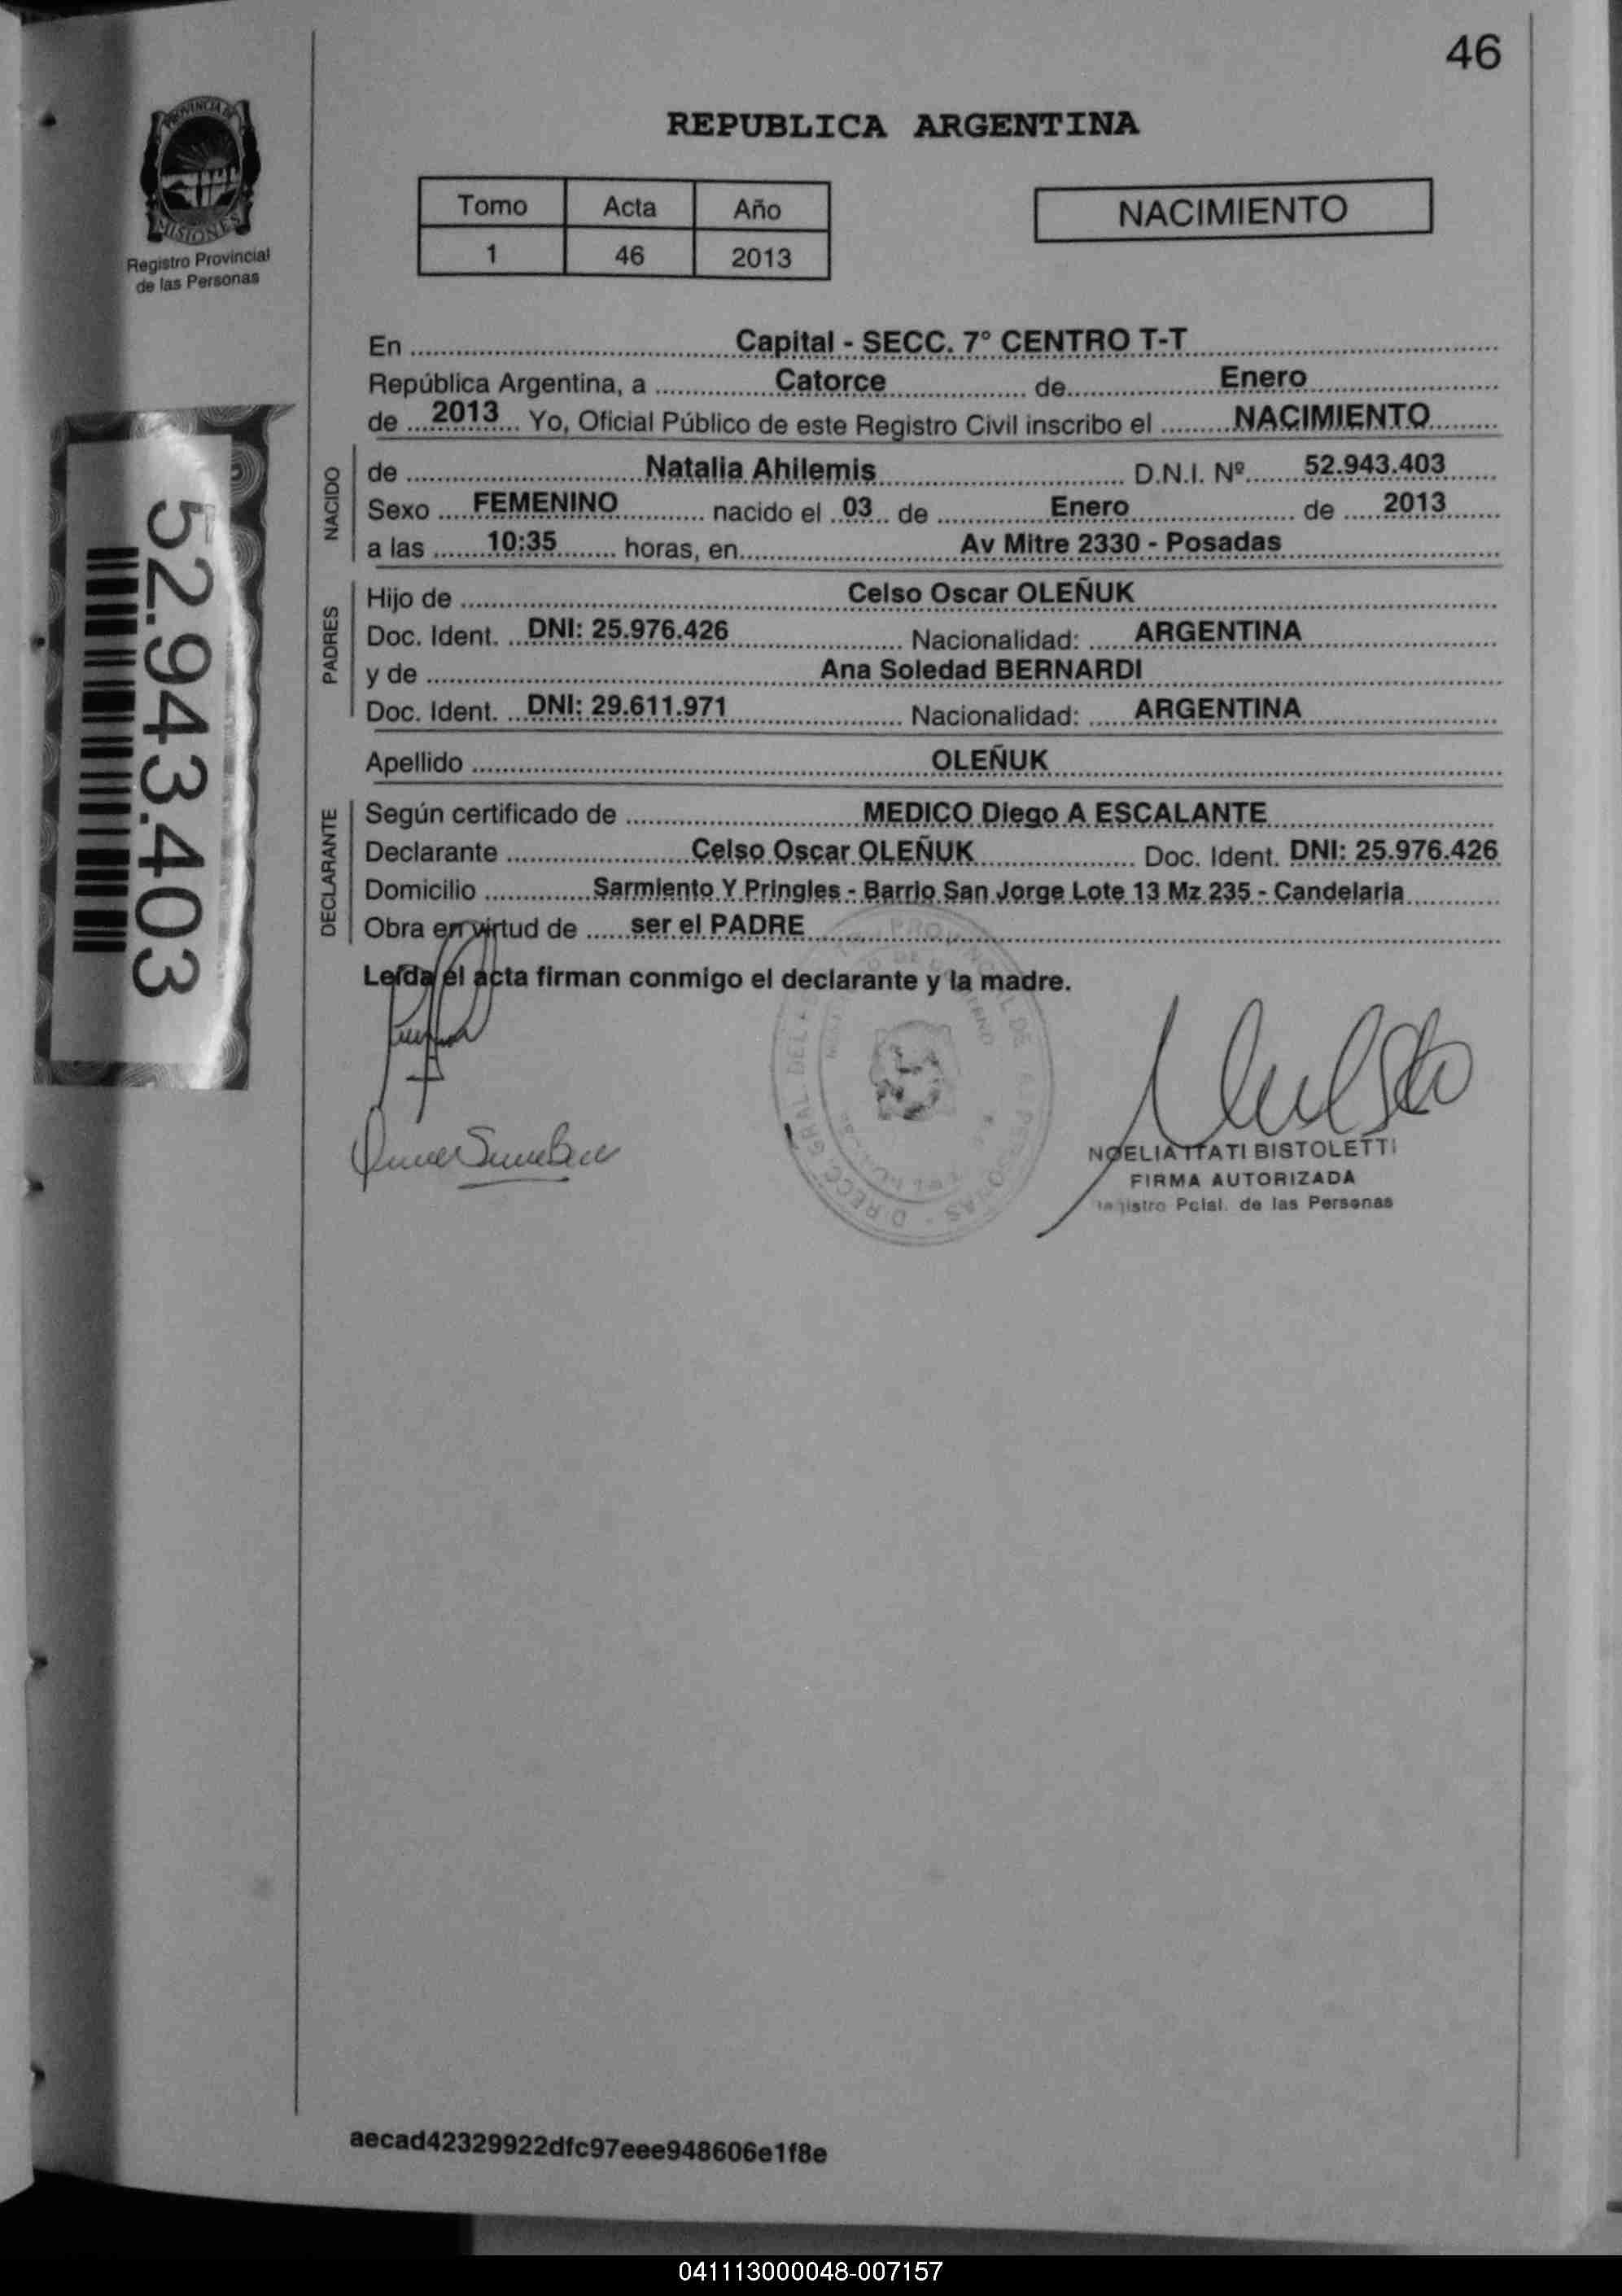 46
PROVINCIA DE
MISIONES
Registro Provincial
de las Personas
REPUBLICA ARGENTINA
Tomo Acta Año
1 46 2013
NACIMIENTO
En Capital - SECC. 7° CENTRO T-T
República Argentina, a Catorce de Enero
de 2013 Yo, Oficial Público de este Registro Civil inscribo el NACIMIENTO
NACIDO
de Natalia Ahilemis D.N.I. Nº 52.943.403
Sexo FEMENINO nacido el 03 de Enero de 2013
a las 10:35 horas, en Av Mitre 2330 - Posadas
PADRES
Hijo de Celso Oscar OLEÑUK
Doc. Ident. DNI: 25.976.426 Nacionalidad: ARGENTINA
y de Ana Soledad BERNARDI
Doc. Ident. DNI: 29.611.971 Nacionalidad: ARGENTINA
Apellido OLEÑUK
DECLARANTE
Según certificado de MEDICO Diego A ESCALANTE
Declarante Celso Oscar OLEÑUK Doc. Ident. DNI: 25.976.426
Domicilio Sarmiento Y Pringles - Barrio San Jorge Lote 13 Mz 235 - Candelaria
Obra en virtud de ser el PADRE
Leída el acta firman conmigo el declarante y la madre.
52.943.403
NOELIA ITATI BISTOLETTI
FIRMA AUTORIZADA
Pcial. de las Personas
aecad42329922dfc97eee948606e1f8e
041113000048-007157